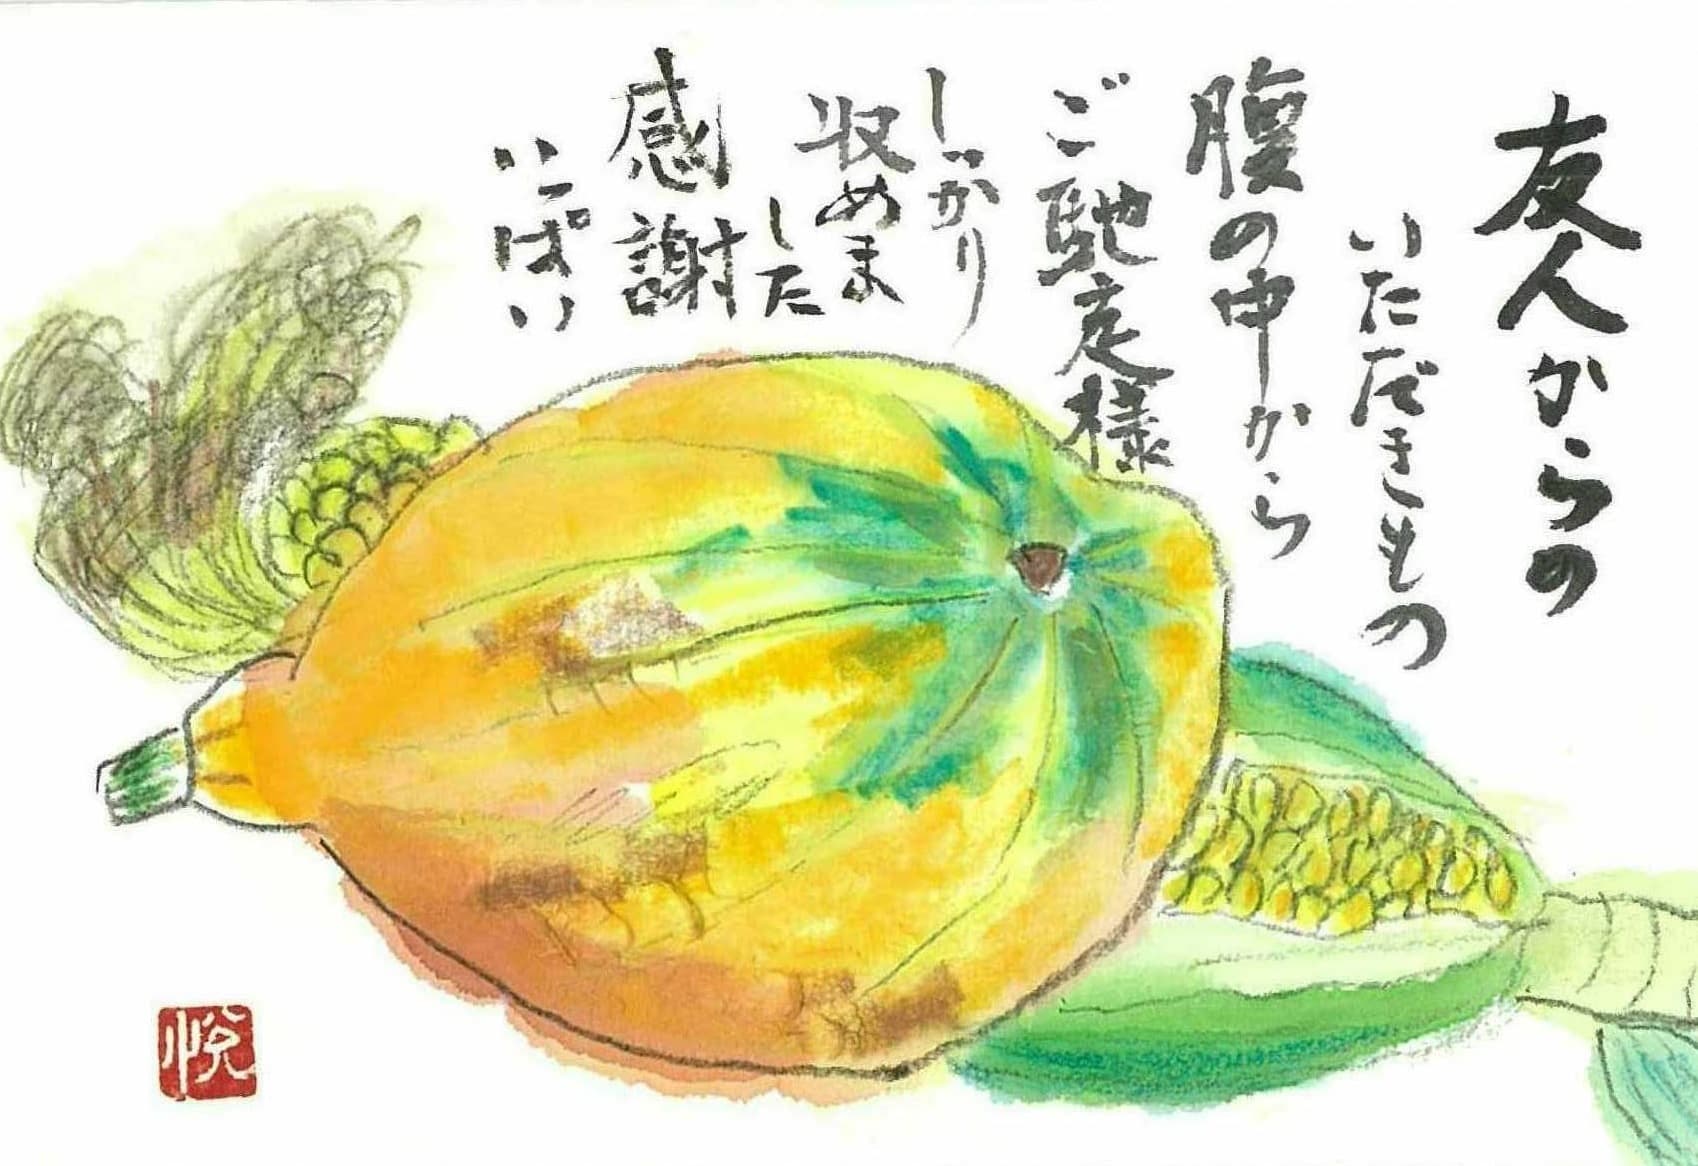 友人からの
いただきもの
腹の中から
ご馳走様
しっかり
収めま
した
感謝
いっぱい
悦